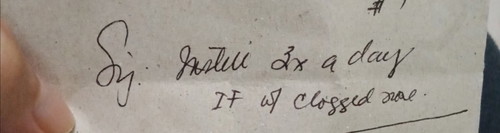 #
Sig: Instill 3x a day
If w/ clogged nose.